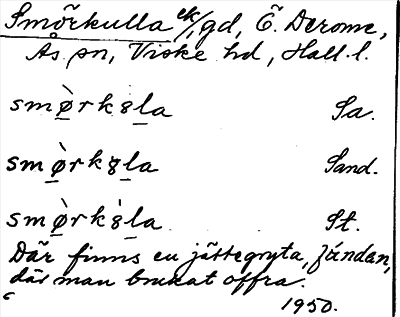 Smörkulla ek/, gd, Ö. Derome,
Ås sn, Viske hd, Hall. l.
smø̠̀rk8l̠a Sa.
smø̠̀rk8l̠a Sand.
smø̠̀rk8̀l̠a St.
Där finns en jättegryta,
där man brukat offra.
1950.